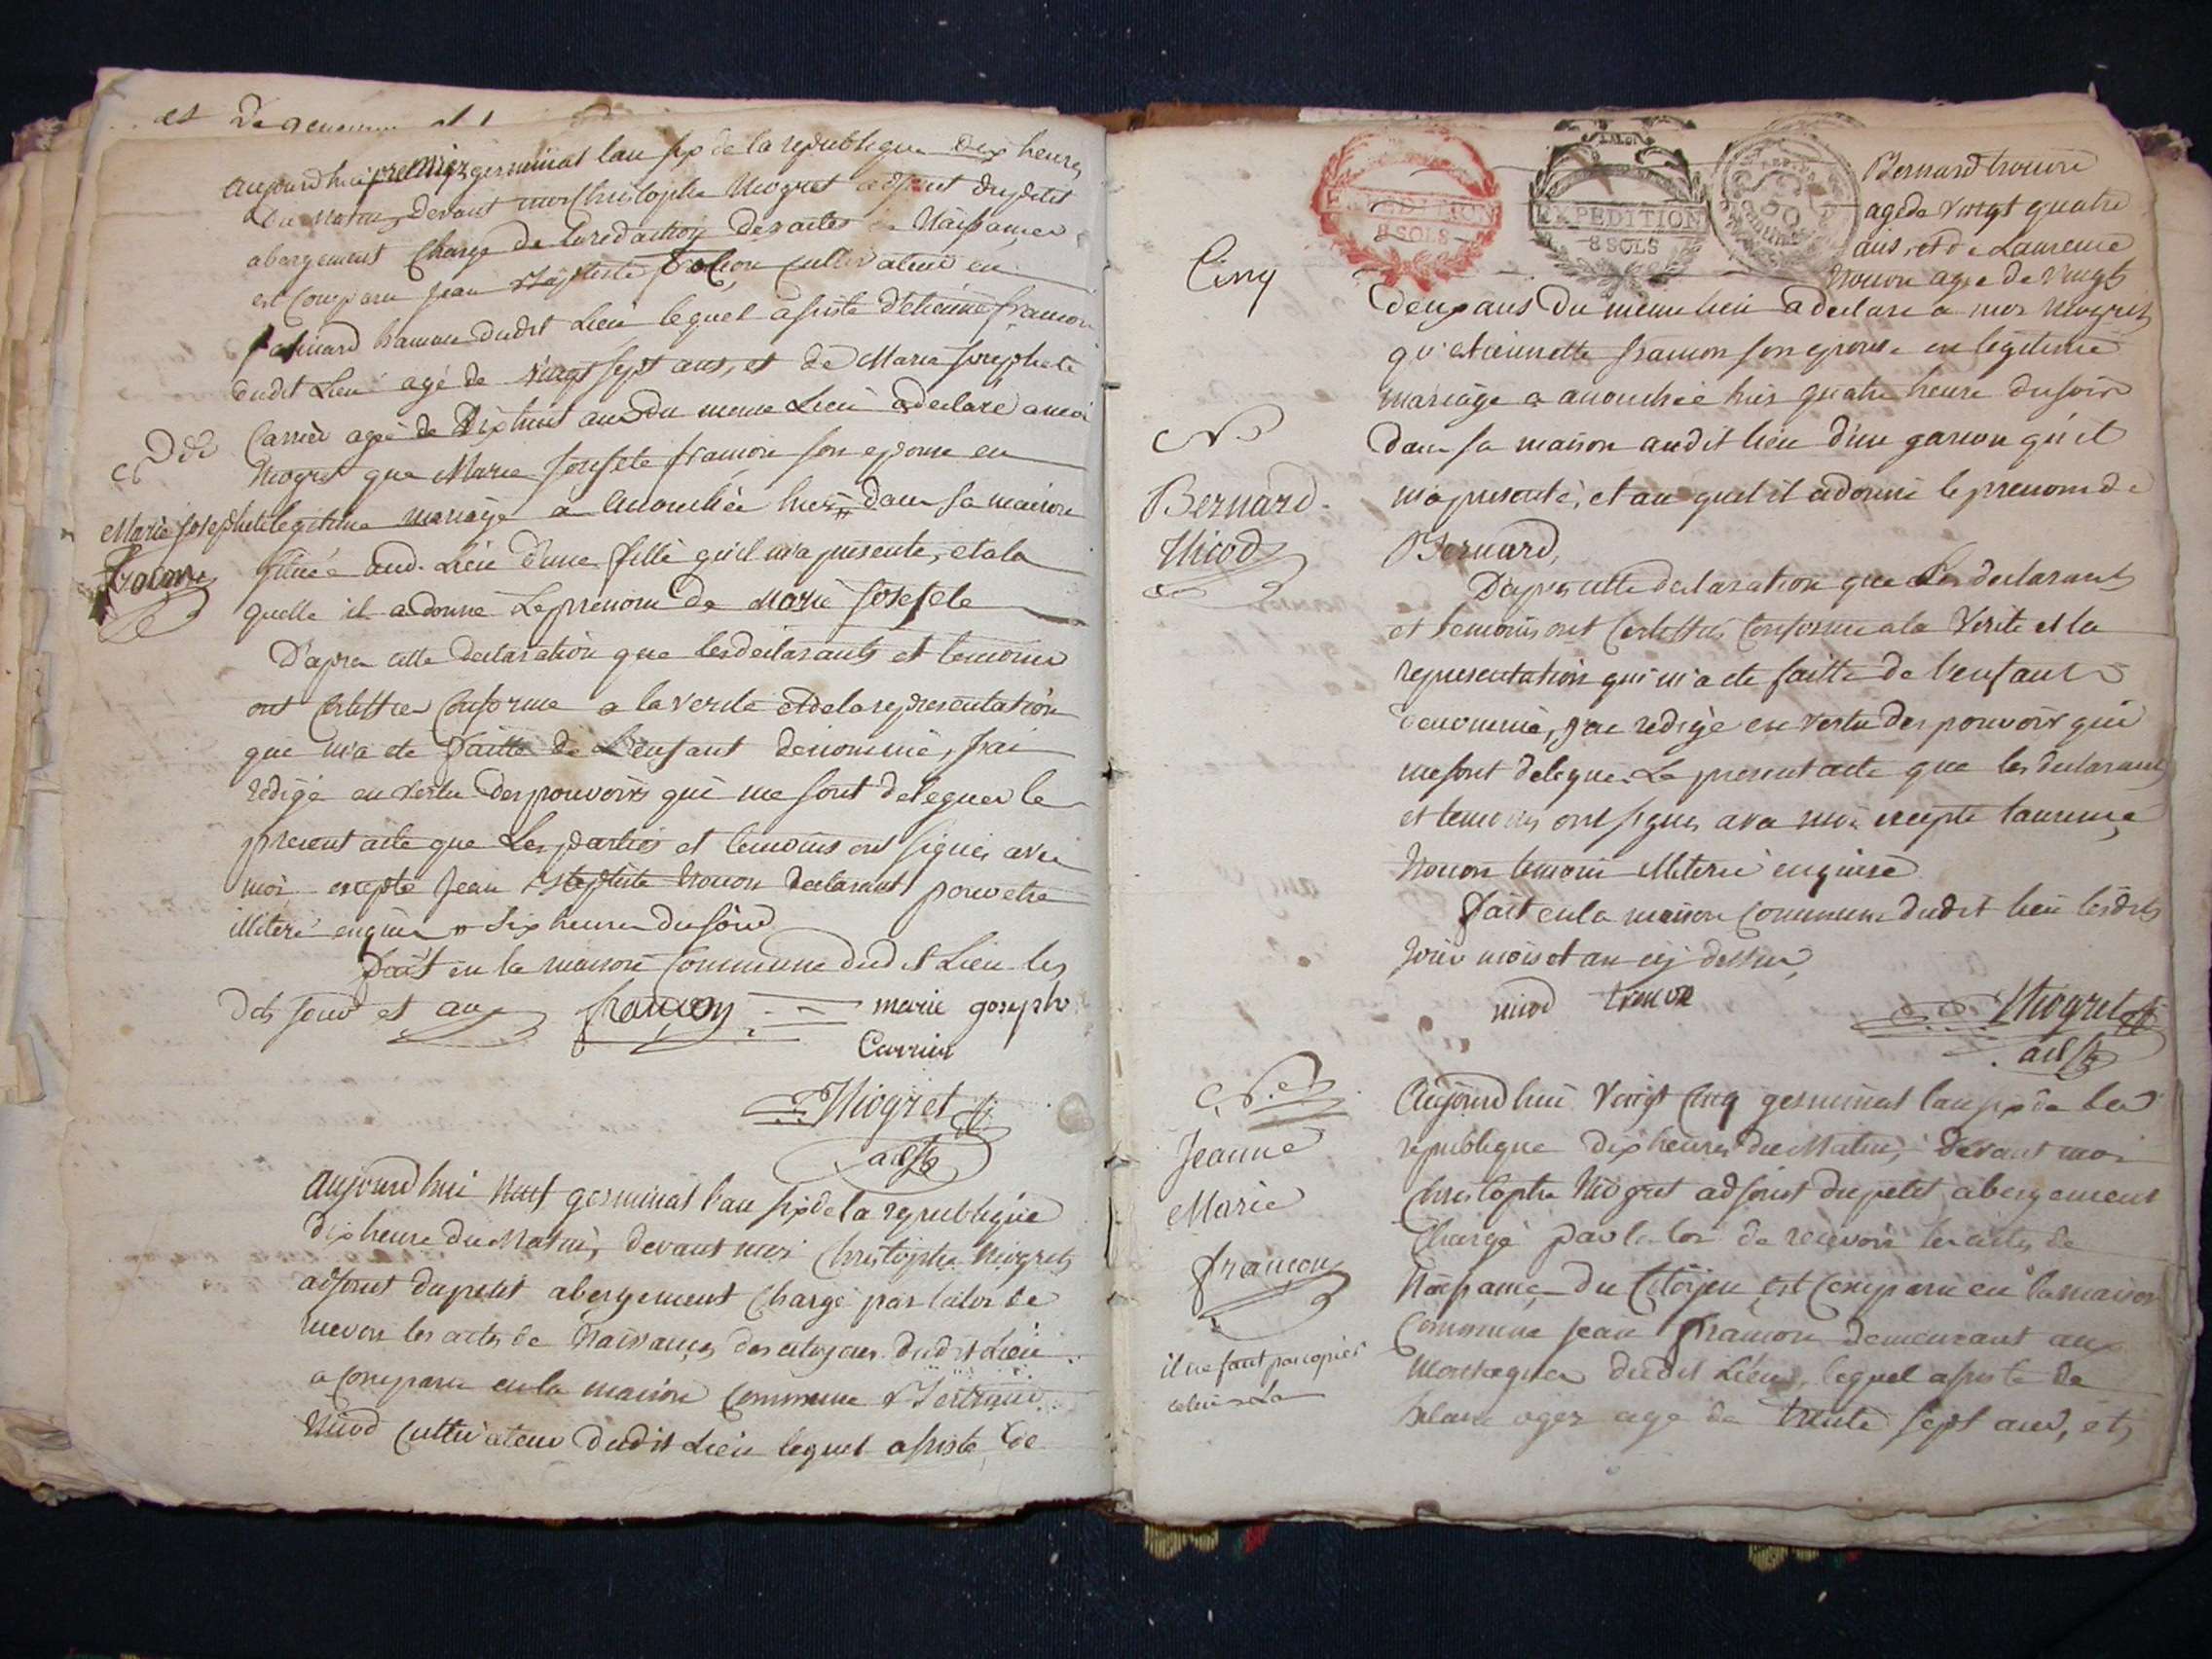 Aujourd'hui premier germinal l'an six de la republique dix heures
du matin, devant moi Christophe Niogret adjoint du petit
abergement chargé de la redaction des actes de Naissances
est comparu jean Baptiste cultivateur en
dudit Lieu lequel assisté d'etienne francon
dudit Lieu agé de vingt sept ans, et de Marie josephete
Carrier agé de Dixhuit ans du meme Lieu a declaré a moi
Niogret que Marie josefete francon son epouse en
legitime mariage a accouchée hier dans sa maison
située aud. Lieu d'une fille qu'il m'a presenté, et a la
quelle il a donné Le prenom de Marie Josefete
D'apres cette declaration que les declarants et temoins
ont certiffier conforme a la verité et de la representation
qui m'a eté faitte de L'enfant denommé, j'ai
redigé en vertu des pouvoirs qui me sont deleguer le
present acte que Les parties et temoins ont signés avec
moi excepté jean Baptiste declarant pour etre
illiteré enquis six heures du soir
fait en la maison commune dudit Lieu les
dits jour et an francon marie joseph
Carrier
Niogret
adjt
Marie josephete
francon
Aujourd'hui huit germinal l'an six de la republique
dix heure du Matin, devant moi Christophe Niogret
adjoint du petit abergement chargé par la loi de
recevoir les actes de Naissances des citoyens dudit Lieu
a comparu en la maison commune
Nicod cultivateur dudit Lieu lequel assisté de
EXPEDITION
8 SOLS
EXPEDITION
8 SOLS
Cinq
Bernard
agé de vingt quatre
ans, et de Laurence
agée de vingt
deux ans du meme lieu a declaré a moi Niogret
qu'etiennette francon son epouse en legitime
mariage a accouchée hier quatre heure du soir
dans sa maison audit lieu d'un garcon qu'il
m'a presenté, et au quel il a donné le prenom de
Bernard,
N.
Bernard
Nicod
D'apres cette declaration que les declarants
et temoins ont certiffiés conforme a la verité et la
representation qui m'a eté faitte de l'enfant
denommé, j'ai redigé en vertu des pouvoirs qui
me sont delegués Le present acte que les declarants
et temoins ont signés avec moi excepté laurence
temoin illiteré enquise
fait en la maison commune dudit lieu lesdits
jour mois et an cy dessus
nicod
Niogret
adjt
N.
Jeanne
Marie
francon
il ne faut pas copier
celui La
Aujourd'hui vingt cinq germinal l'an six de la
republique dix heures du Matin, devant moi
Christophe Niogret adjoint du petit abergement
chargé par la loi de recevoir les actes de
Naissance du citoyen est comparu en la maison
commune jean francon demeurant aux
dudit Lieu, lequel assisté de
agé de trente sept ans, et